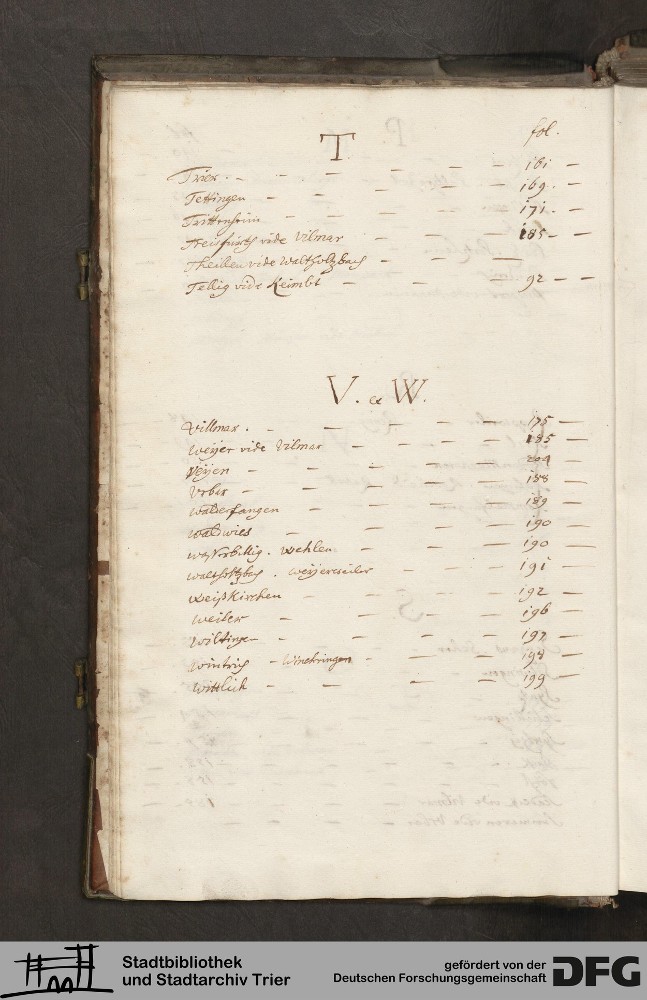 T. fol.
Trier. 161
Tettingen 169.
Trittenheim 171.
Treisfurth vide Vilmar 185
Theillen vide Waltholtzbach
Tellig vide Keimbt 92
V. et W.
Villmar. 175
Weijer vide Vilmar 185
Veijen 204
Vrber 188
Walderfangen 189
Waldwies 190
Wasserbillig. Wehlen 190
Waltholtzbach. Weijerweiler 191
Weißkirchen 192
Weiler 196
Wiltingen 197
Wintrich Winchringen 198
Wittlich 199
Stadtbibliothek
und Stadtarchiv Trier
gefördert von der
Deutschen Forschungsgemeinschaft
DFG